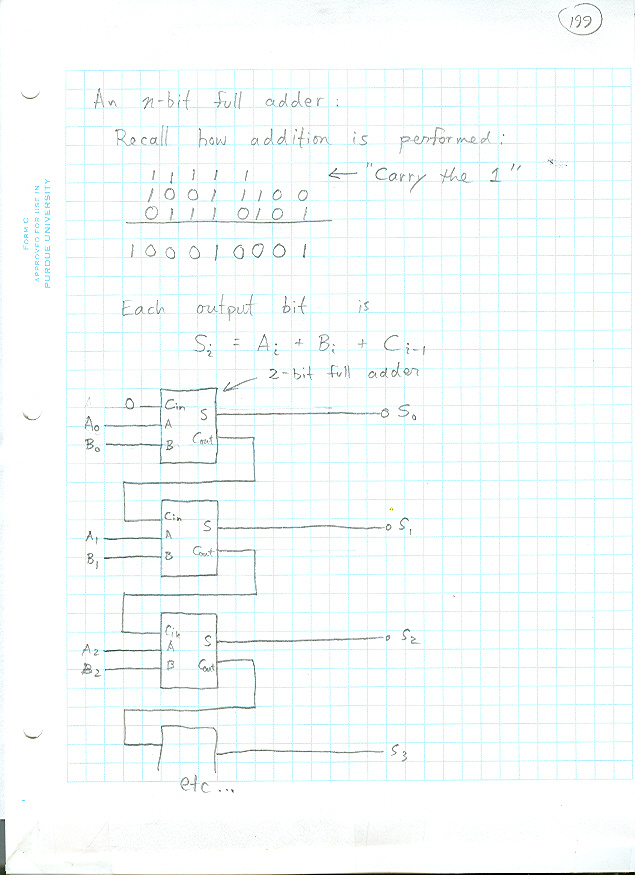 199
An n-bit full adder:
Recall how addition is performed:
1 1 1 1 1 ← "Carry the 1"
1 0 0 1 1 1 0 0
0 1 1 1 0 1 0 1
1 0 0 0 1 0 0 0 1
Each output bit is
Sᵢ = Aᵢ + Bᵢ + Cᵢ₋₁
2-bit full adder
0 Cin
A₀ A S S₀
B₀ B Cout
Cin
A₁ A S S₁
B₁ B Cout
Cin
A₂ A S S₂
B₂ B Cout
S₃
etc...
FORM C
APPROVED FOR USE IN
PURDUE UNIVERSITY